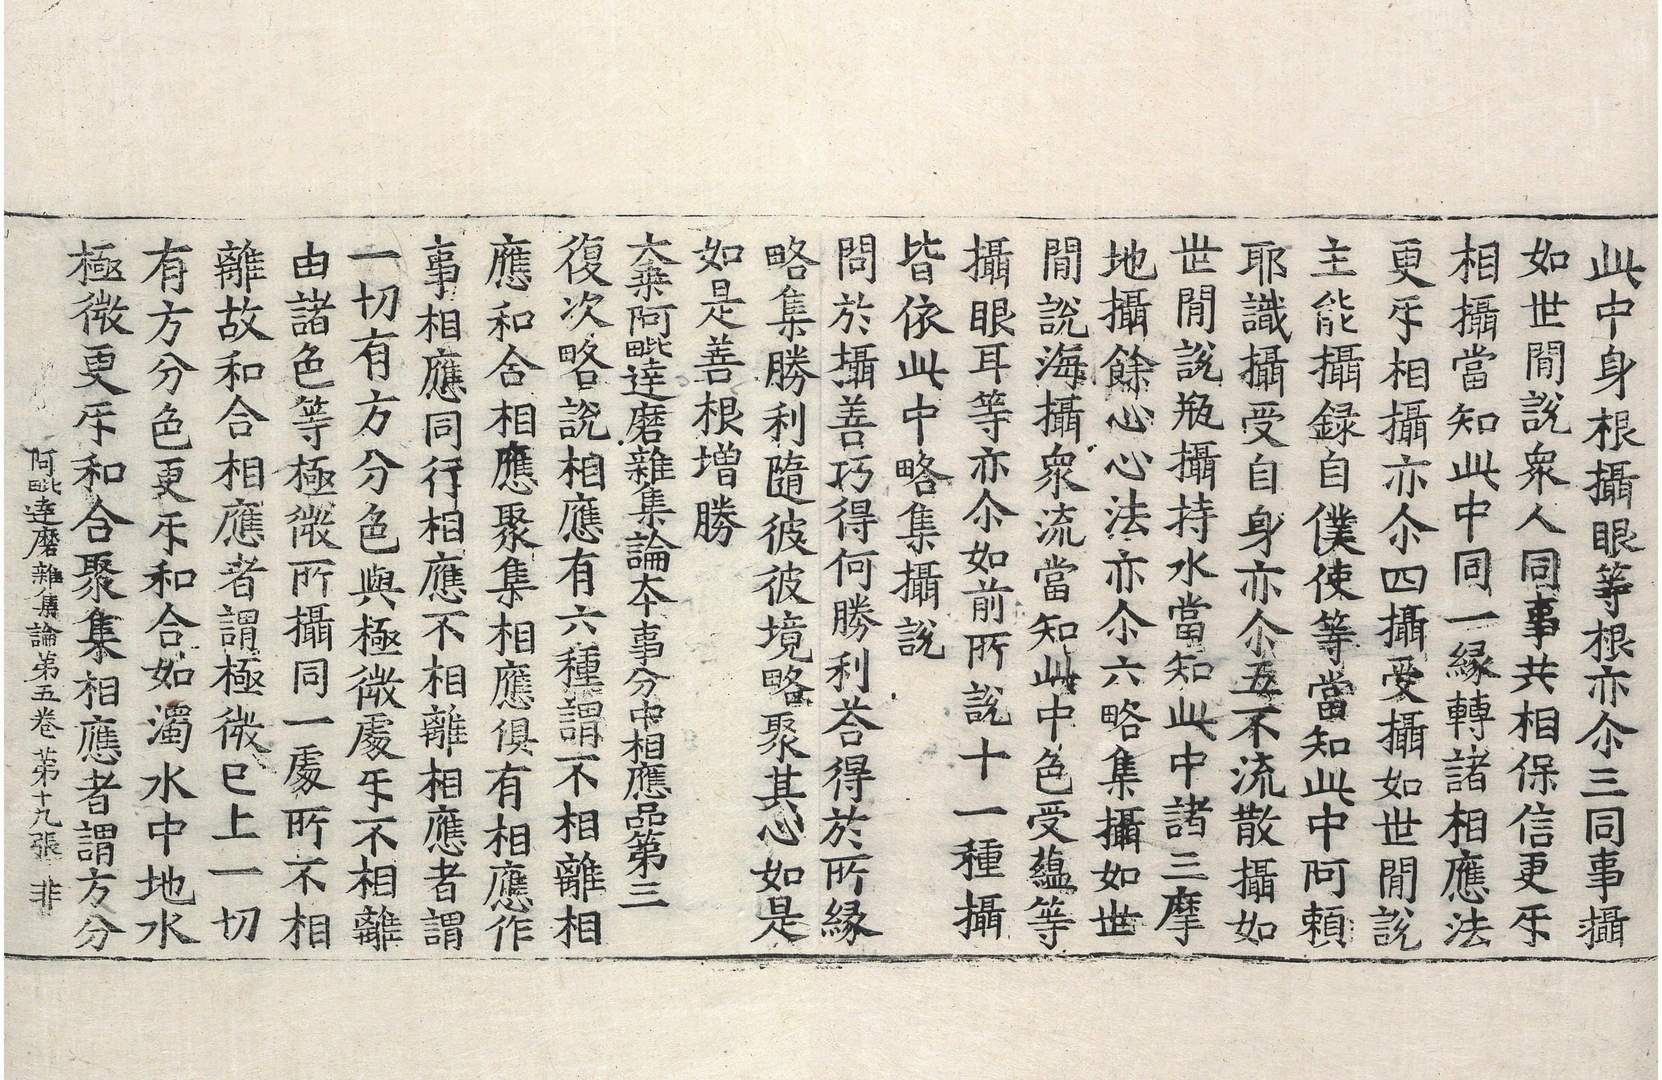 此中身根攝眼等根亦尒三同事攝
如世閒說衆人同事共相保信更㸦
相攝當知此中同一縁轉諸相應法
更㸦相攝亦尒四攝受攝如世閒說
主能攝録自僕使等當知此中阿賴
耶識攝受自身亦尒五不流散攝如
世閒說瓶攝持水當知此中諸三摩
地攝餘心心法亦尒六略集攝如世
閒說海攝衆流當知此中色受蘊等
攝眼耳等亦尒如前所說十一種攝
皆依此中略集攝說
問於攝善巧得何勝利荅得於所縁
略集勝利隨彼彼境略聚其心如是
如是善根增勝
大乘阿毗達磨雜集論本事分中相應品第三
復次略說相應有六種謂不相離相
應和合相應聚集相應俱有相應作
事相應同行相應不相離相應者謂
一切有方分色與極微處㸦不相離
由諸色等極微所攝同一處所不相
離故和合相應者謂極微已上一切
有方分色更㸦和合如濁水中地水
極微更㸦和合聚集相應者謂方分
阿毗達磨雜集論第五卷 苐十九張 非